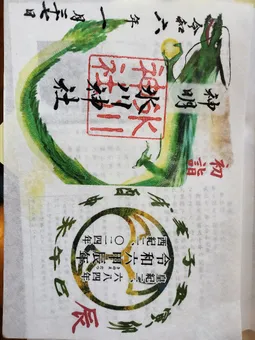 初詣
神明
氷川神社
氷川
神社
令和六年
一月二十七日
子丑寅卯辰巳午未申酉戌亥
皇紀二六八四年
令和六甲辰年
西紀二〇二四年